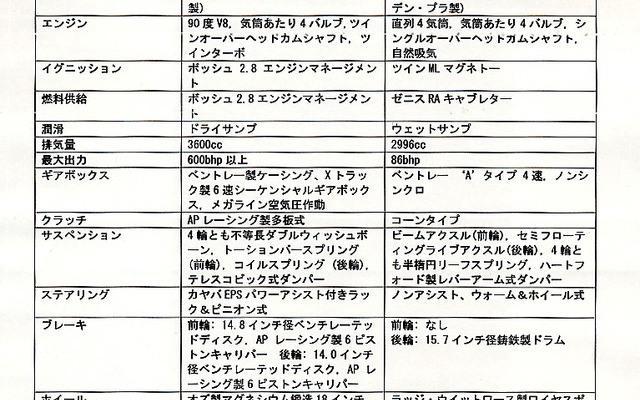 製)
デン・プラ製)
エンジン
90度V8, 気筒あたり4バルブ, ツイ
ンオーバーヘッドカムシャフト, ツ
インターボ
直列4気筒, 気筒あたり4バルブ, シ
ングルオーバーヘッドカムシャフト,
自然吸気
イグニッション
ボッシュ 2.8 エンジンマネージメン
ト
ツインMLマグネトー
燃料供給
ボッシュ 2.8 エンジンマネージメン
ト
ゼニスRAキャブレター
潤滑
ドライサンプ
ウェットサンプ
排気量
3600cc
2996cc
最大出力
600bhp以上
86bhp
ギアボックス
ベントレー製ケーシング、Xトラッ
ク製6速シーケンシャルギアボック
ス, メガライン空気圧作動
ベントレー 'A' タイプ 4速, ノンシ
ンクロ
クラッチ
APレーシング製多板式
コーンタイプ
サスペンション
4輪とも不等長ダブルウィッシュボ
ーン, トーションバースプリング
(前輪), コイルスプリング (後輪),
テレスコピック式ダンパー
ビームアクスル(前輪), セミフローテ
ィングライブアクスル(後輪), 4輪と
も半楕円リーフスプリング, ハートフ
ォード製レバーアーム式ダンパー
ステアリング
カヤバEPSパワーアシスト付きラッ
ク&ピニオン式
ノンアシスト、ウォーム&ホイール式
ブレーキ
前輪: 14.8インチ径ベンチレーテッ
ドディスク, AP レーシング製6ピス
トンキャリパー 後輪: 14.0インチ
径ベンチレーテッドディスク, AP レ
ーシング製6ピストンキャリパー
前輪: なし
後輪: 15.7インチ径鋳鉄製ドラム
ホイール
オズ製マグネシウム鍛造18インチ
ラッジ・ウイットワース製ワイヤスポ